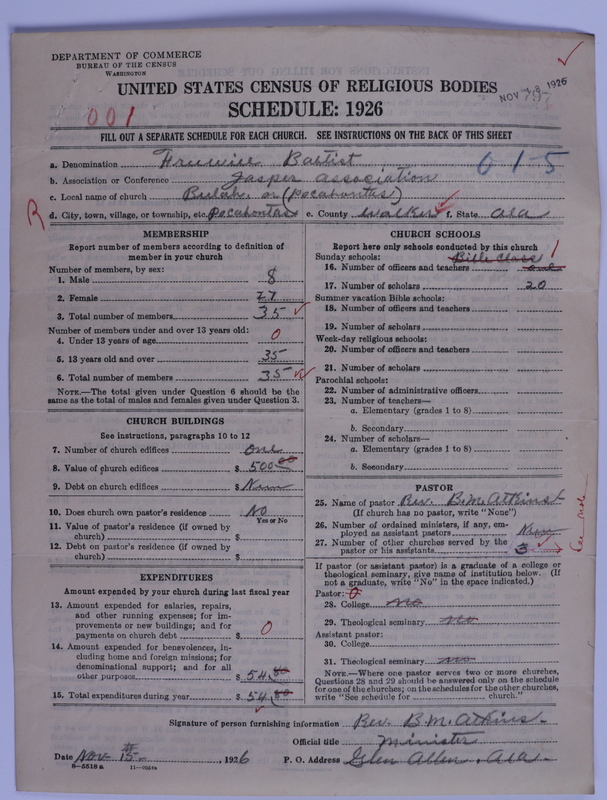 DEPARTMENT OF COMMERCE
BUREAU OF THE CENSUS
WASHINGTON
UNITED STATES CENSUS OF RELIGIOUS BODIES
NOV 1926
001
SCHEDULE: 1926
FILL OUT A SEPARATE SCHEDULE FOR EACH CHURCH. SEE INSTRUCTIONS ON THE BACK OF THIS SHEET
a. Denomination Freewill Baptist 015
b. Association or Conference Jasper association
c. Local name of church Bulah or (Pocahontas)
R d. City, town, village, or township, etc. Pocahontas e. County Walker f. State Ala
MEMBERSHIP
Report number of members according to definition of
member in your church
Number of members, by sex:
1. Male 8
2. Female 27
3. Total number of members 35
Number of members under and over 13 years old:
4. Under 13 years of age 0
5. 13 years old and over 35
6. Total number of members 35
NOTE.—The total given under Question 6 should be
same as the total of males and females given under Question 3.
CHURCH BUILDINGS
See instructions, paragraphs 10 to 12
7. Number of church edifices one
8. Value of church edifices $ 500.00
9. Debt on church edifices $
10. Does church own pastor's residence No
Yes or No
11. Value of pastor's residence (if owned by
church) $
12. Debt on pastor's residence (if owned by
church) $
EXPENDITURES
Amount expended by your church during last fiscal year
13. Amount expended for salaries, repairs,
and other running expenses; for im-
provements or new buildings; and for
payments on church debt $ 0
14. Amount expended for benevolences, in-
cluding home and foreign missions; for
denominational support; and for all
other purposes $ 54.00
15. Total expenditures during year $ 54.00
CHURCH SCHOOLS
Report here only schools conducted by this church
Sunday schools: Bible Class 1
16. Number of officers and teachers one
17. Number of scholars 20
Summer vacation Bible schools:
18. Number of officers and teachers
19. Number of scholars
Week-day religious schools:
20. Number of officers and teachers
21. Number of scholars
Parochial schools:
22. Number of administrative officers
23. Number of teachers—
a. Elementary (grades 1 to 8)
b. Secondary
24. Number of scholars—
a. Elementary (grades 1 to 8)
b. Secondary
PASTOR
25. Name of pastor Rev. B.M. Atkins
(If church has no pastor, write "None")
26. Number of ordained ministers, if any, em-
ployed as assistant pastors
27. Number of other churches served by the
pastor or his assistants 3
If pastor (or assistant pastor) is a graduate of a college or
theological seminary, give name of institution below. (If
not a graduate, write "No" in the space indicated.)
Pastor: 0
28. College no
29. Theological seminary no
Assistant pastor:
30. College
31. Theological seminary no
NOTE.—Where one pastor serves two or more churches,
Questions 28 and 29 should be answered only on the schedule
for one of the churches; on the schedules for the other churches,
write "See schedule for church."
Signature of person furnishing information Rev. B.M. Atkins.
Official title Minister
Date Nov 15 , 1926 P. O. Address Glen Allen, Ala.
8-5518a 11-0551a